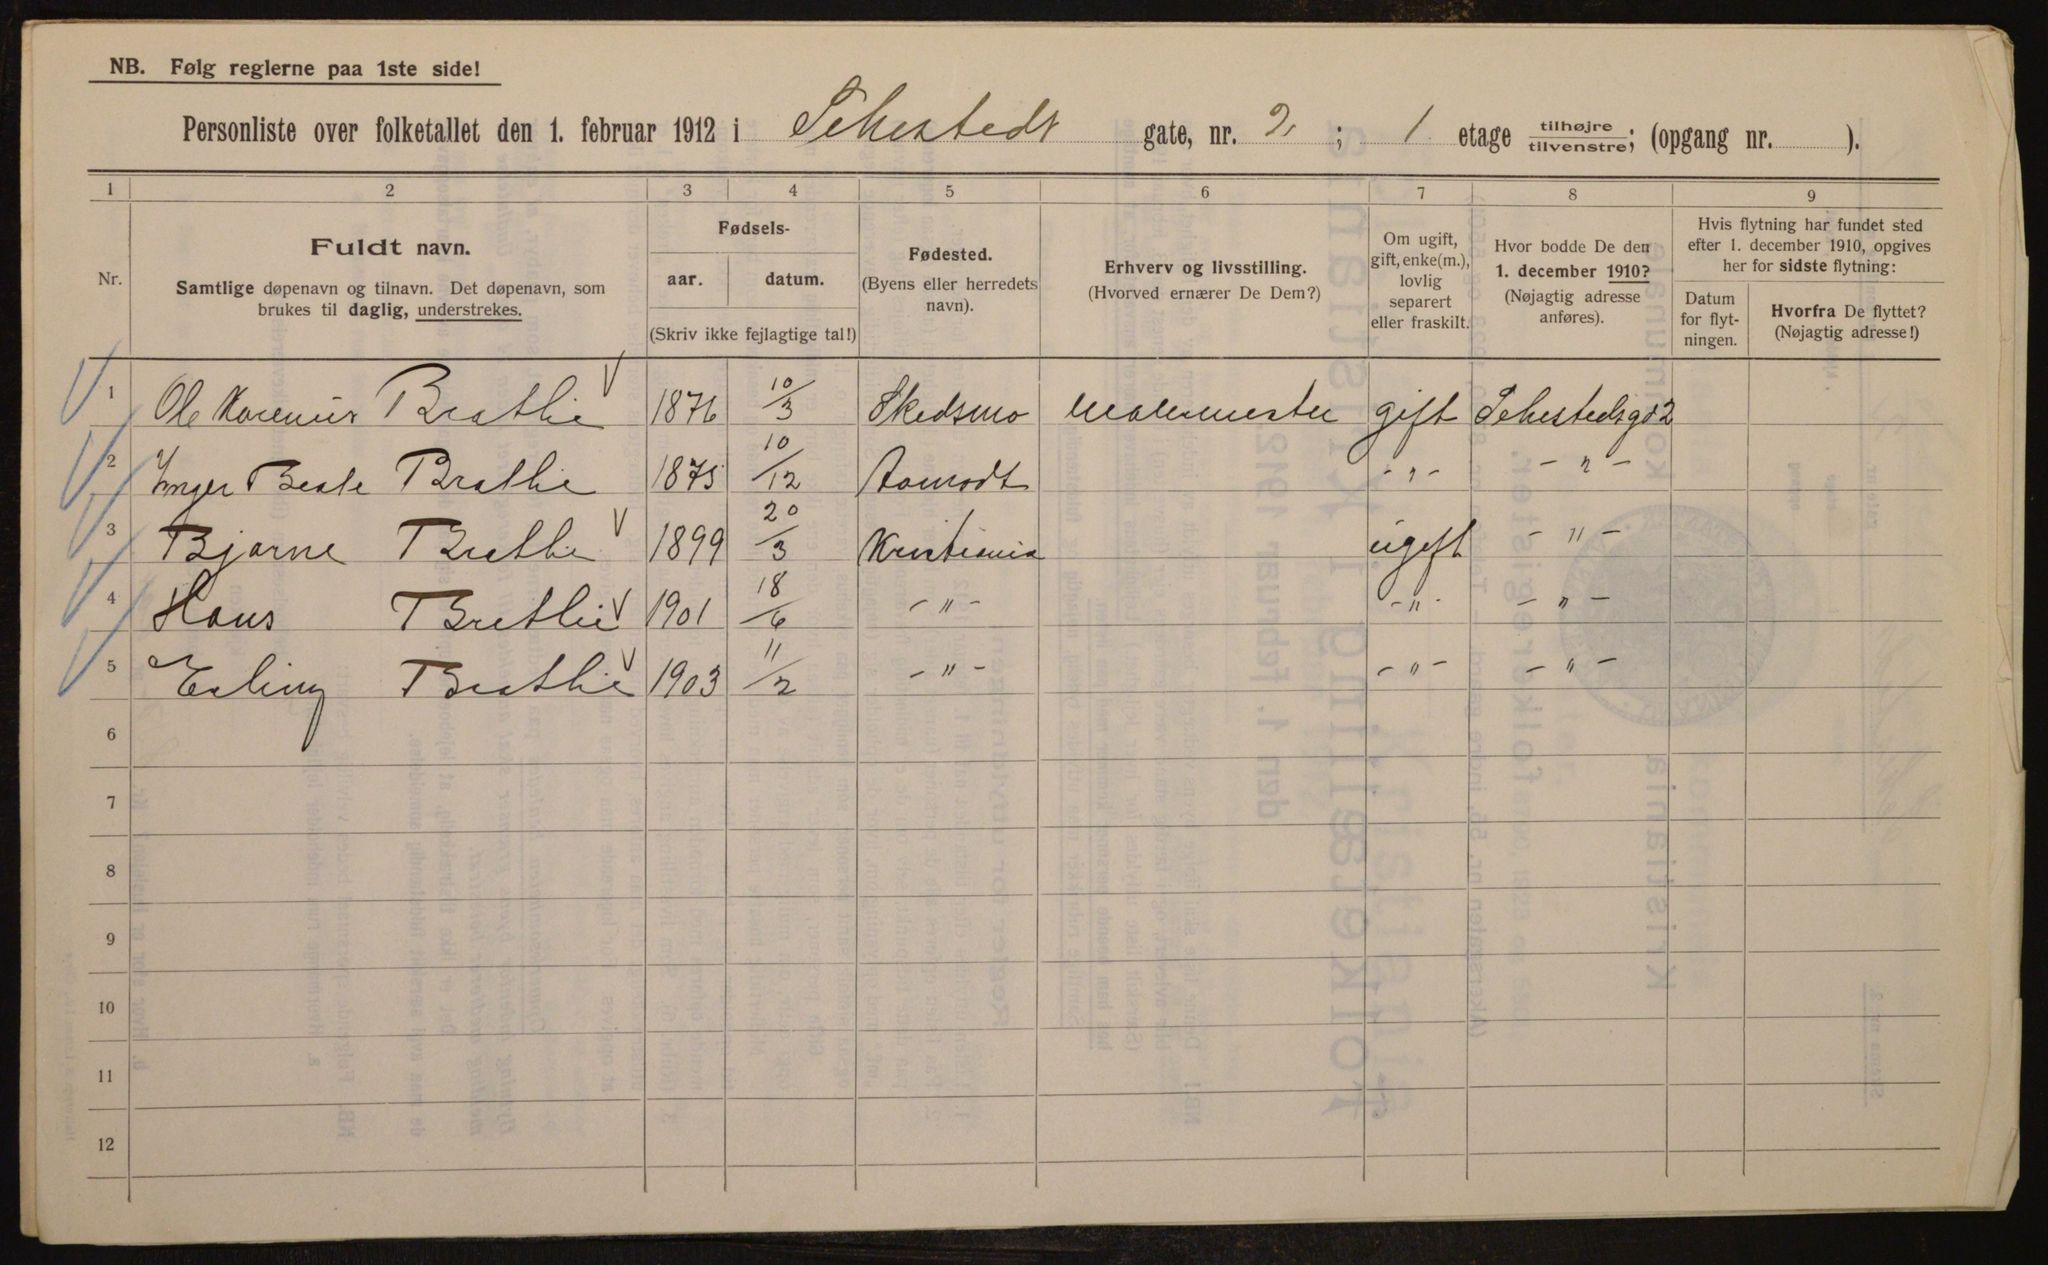 NB. Følg reglerne paa 1ste side!
Personliste over folketallet den 1. februar 1912 i Sehestedt gate, nr. 2 ; 1 etage tilhøjre / tilvenstre; (opgang nr. ).
1 2 3 4 5 6 7 8 9
Nr.
Fuldt navn.
Samtlige døpenavn og tilnavn. Det døpenavn, som
brukes til daglig, understrekes.
Fødsels-
aar. datum.
(Skriv ikke fejlagtige tal!)
Fødested.
(Byens eller herredets
navn).
Erhverv og livsstilling.
(Hvorved ernærer De Dem?)
Om ugift,
gift, enke(m.),
lovlig
separert
eller fraskilt.
Hvor bodde De den
1. december 1910?
(Nøjagtig adresse
anføres).
Hvis flytning har fundet sted
efter 1. december 1910, opgives
her for sidste flytning:
Datum
for flyt-
ningen.
Hvorfra De flyttet?
(Nøjagtig adresse!)
1 Ole Karenius Brathie 1876 10/3 Skedsmo Malermester gift Sehestedsgd 2
2 Inger Beate Brathie 1875 10/12 Aamodt -"- -"-
3 Bjarne Brathie 1899 20/3 Kristiania ugift -"-
4 Hans Brathie 1901 18/6 -"- -"- -"-
5 Erling Brathie 1903 11/2 -"- -"- -"-
6
7
8
9
10
11
12